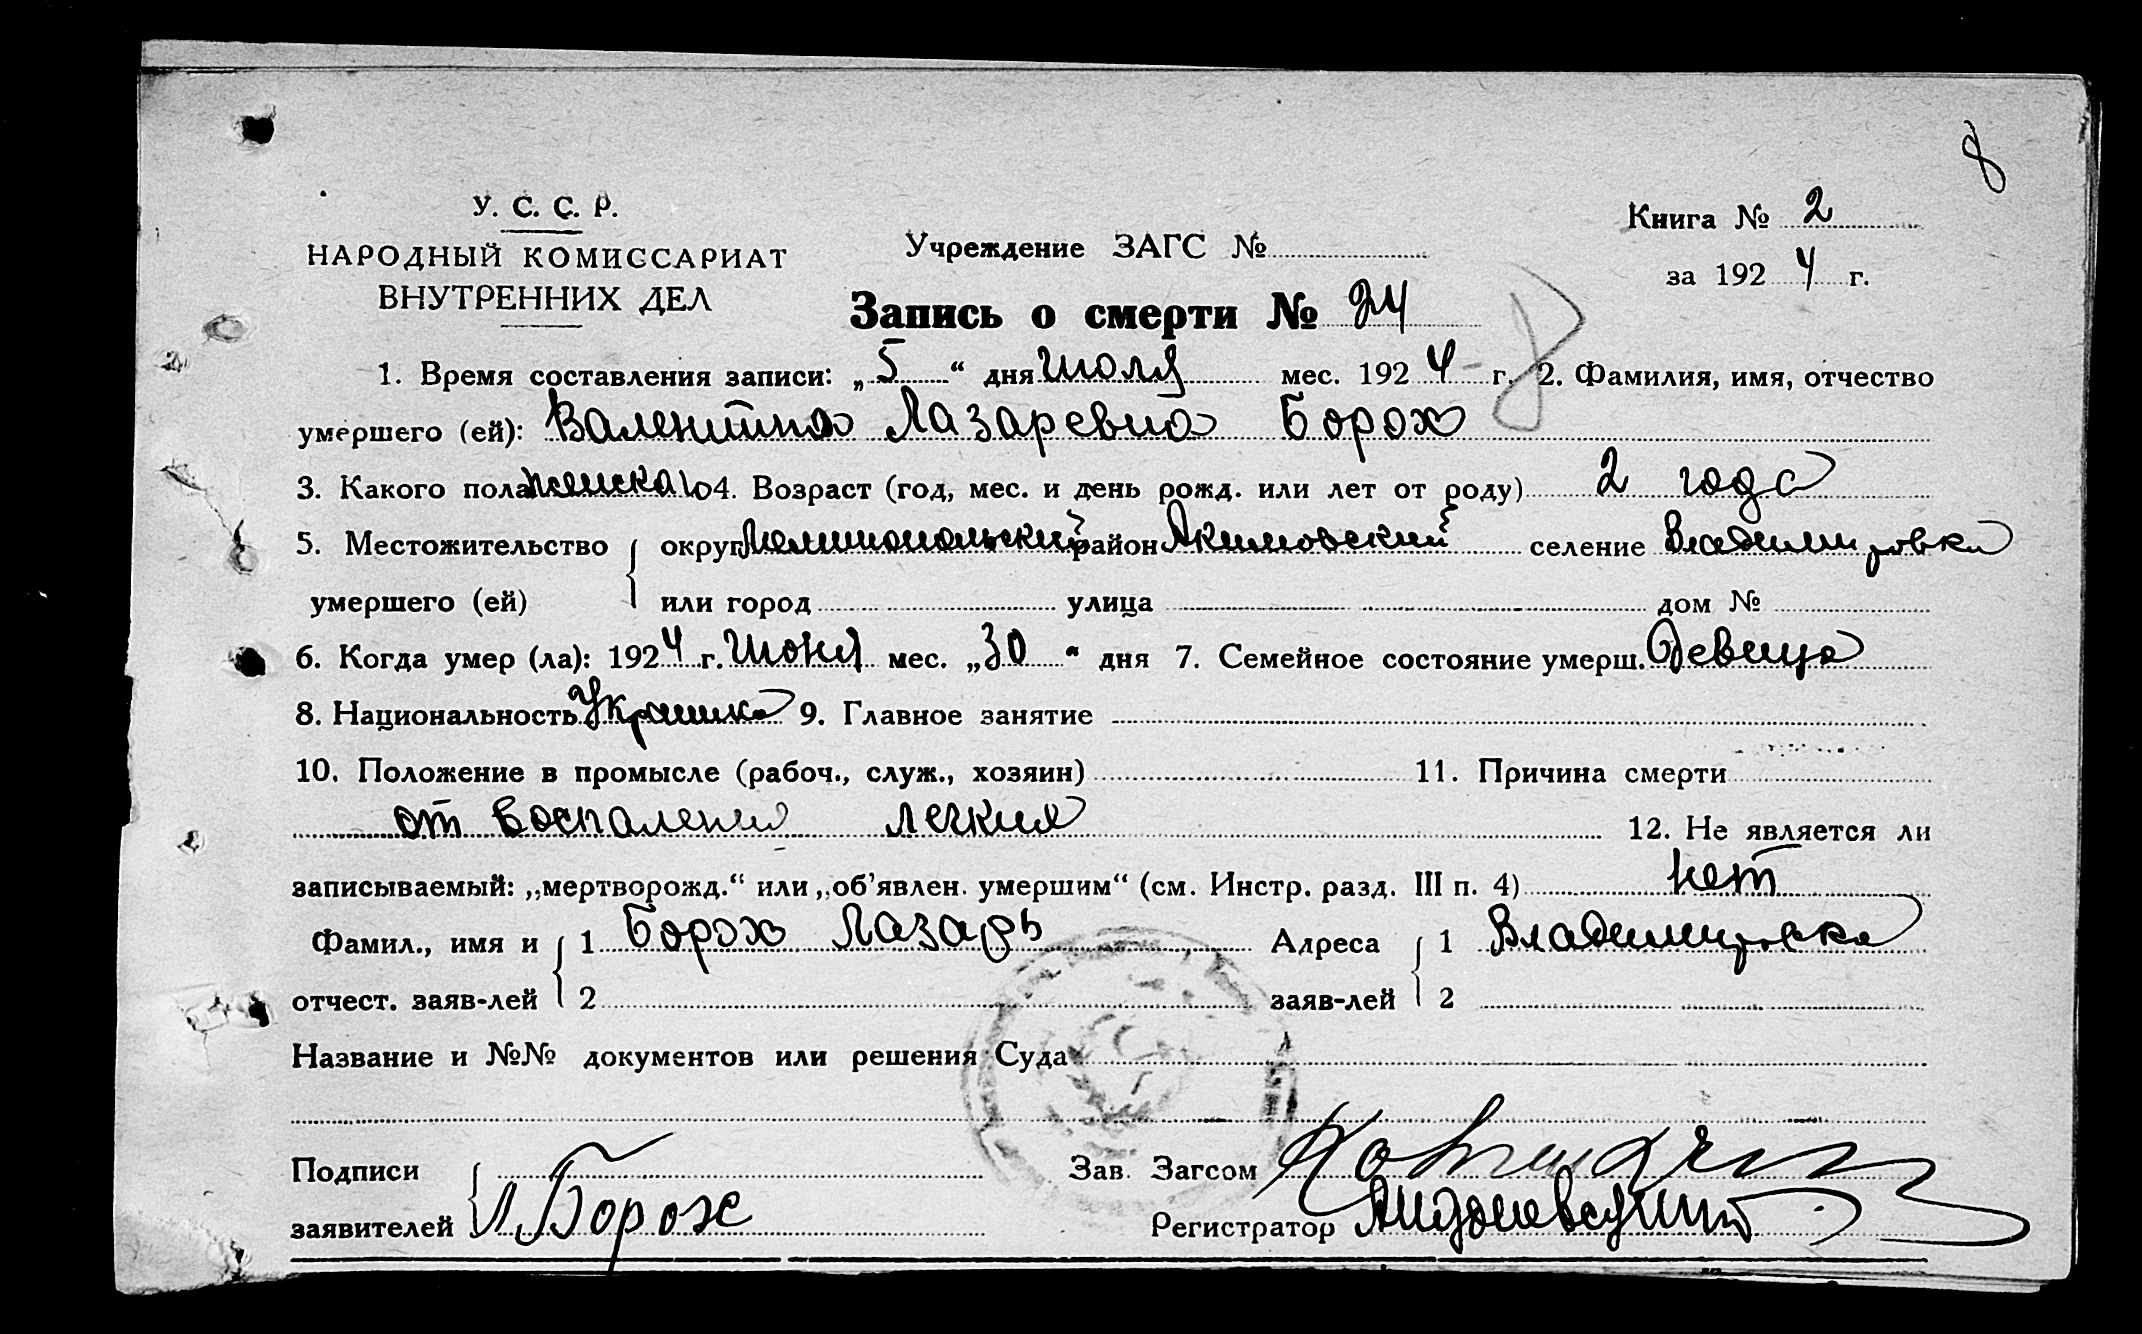 8
У. С. С. Р.
НАРОДНЫЙ КОМИССАРИАТ
ВНУТРЕННИХ ДЕЛ
Учреждение ЗАГС №
Книга № 2
за 1924 г.
Запись о смерти № 24
8
1. Время составления записи: „5“ дня июля мес. 1924 г. 2. Фамилия, имя, отчество
умершего (ей): Валентина Лазаревна Борох
3. Какого пола женскаго 4. Возраст (год, мес. и день рожд. или лет от роду) 2 года
5. Местожительство { округ Мелитопольский район Акимовский селение Владимировка
умершего (ей) или город улица дом №
6. Когда умер (ла): 1924 г. Июня мес. „30“ дня 7. Семейное состояние умерш. Девица
8. Национальность Украинка 9. Главное занятие
10. Положение в промысле (рабоч., служ., хозяин) 11. Причина смерти
от воспаления легких 12. Не является ли
записываемый: „мертворожд.“ или „об’явлен. умершим“ (см. Инстр. разд. III п. 4) нет
Фамил., имя и { 1 Борох Лазарь Адреса { 1 Владимировка
отчест. заяв-лей 2 заяв-лей 2
Название и №№ документов или решения Суда
Подписи { Зав. Загсом
заявителей Л. Борох Регистратор